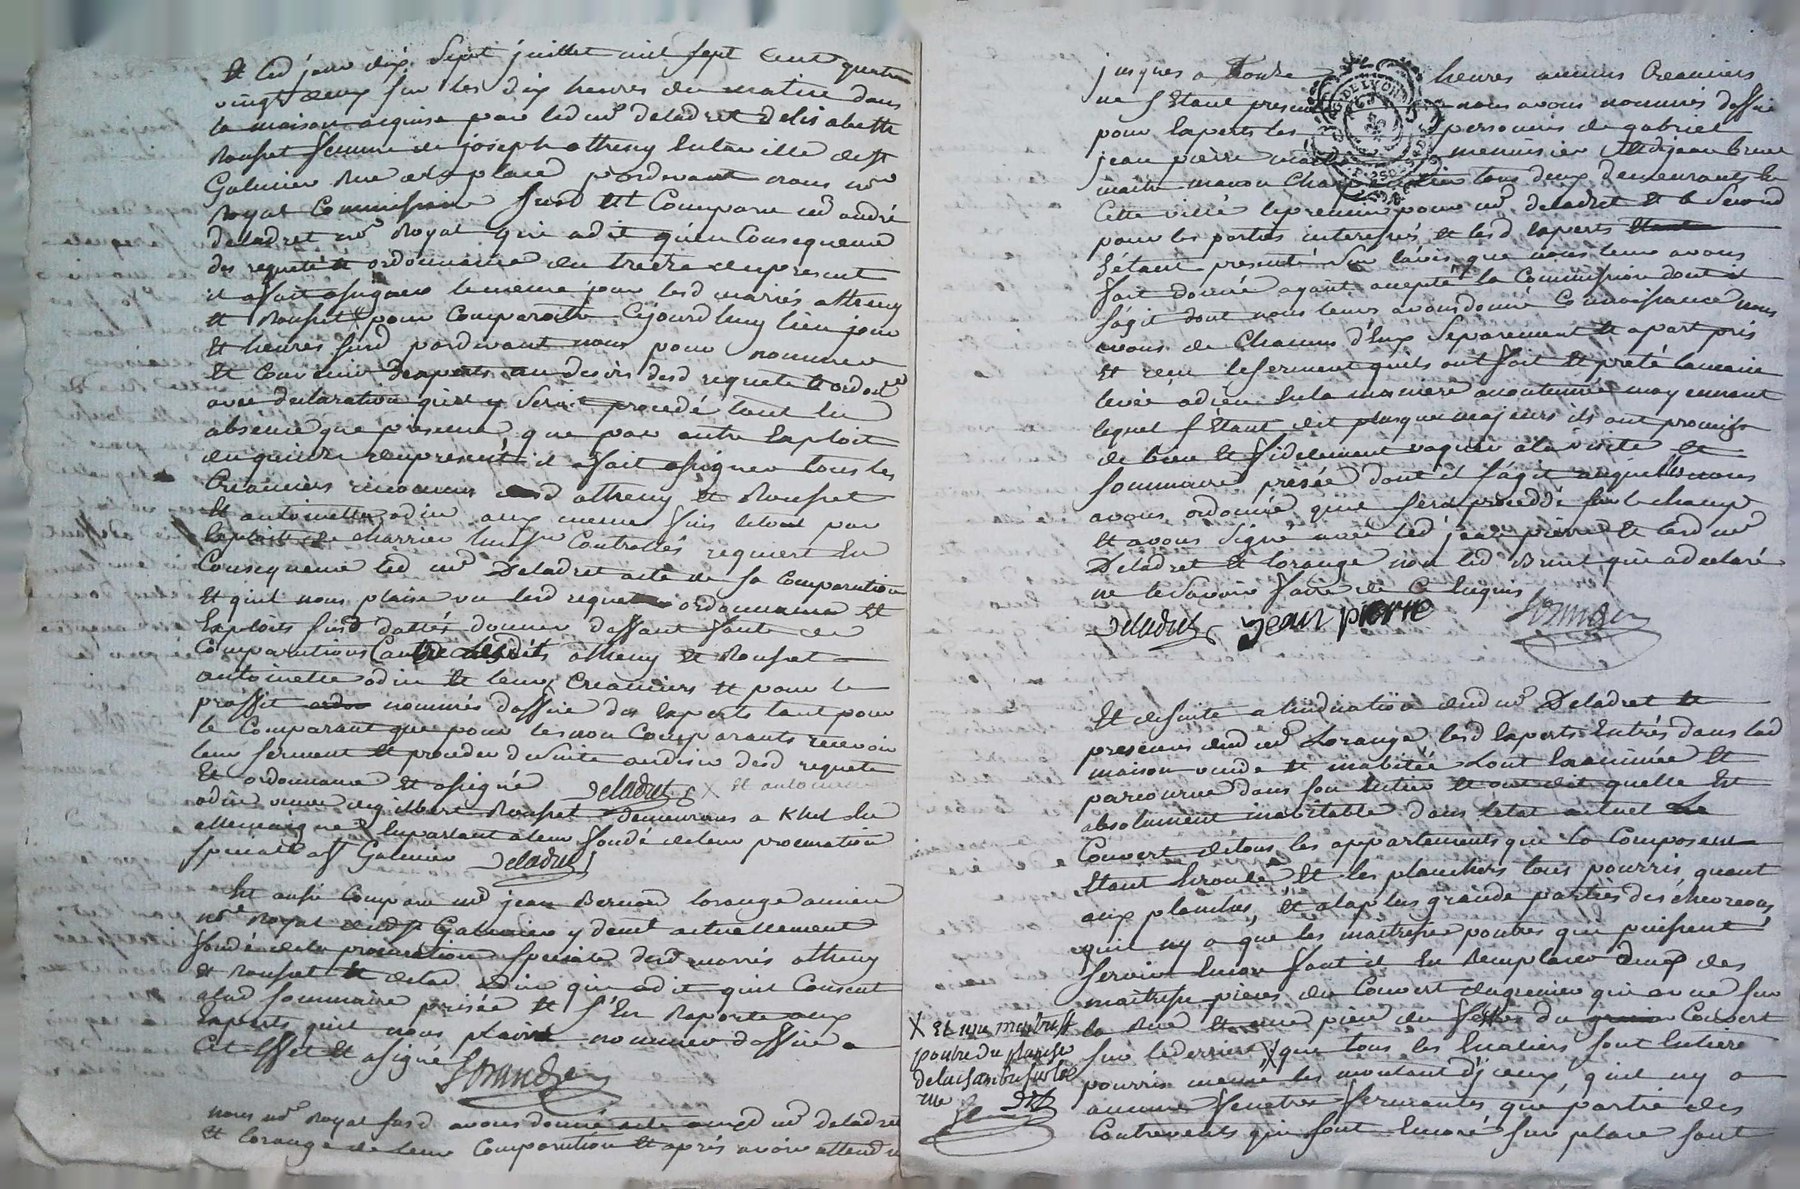 Et led jour dix sept juillet mil sept cent quatre
vingt deux sur les dix heures du matin dans
la maison acquise par led me deladret delisabeth
Rousset femme de joseph atheny en la ville de st
Galmier Rue de la place pardevant nous nre
Royal Commissaire susd Est Comparu me andré
deladret nre Royal qui a dit qu'en Consequence
des requete et ordonnance du treize du present
il a fait assigner le meme jour lesd mariés atheny
et Rousset pour Comparoitre Cejourd'huy lieu jour
Et heures susd pardevant nous pour nommer
Et Convenir d'experts au desirs desd requete et ordonce
avec declaration qu'il y seroit procedé tant en
absence que presence, que par autre Exploit
du quinze du present il a fait assigner tous les
Creanciers inconnus desd atheny et Rousset
Et antoinette odin aux meme fins le tout par
Exploits de charrier huissier Controllés requiert En
Consequence led me Deladret acte de sa Comparution
Et qu'il nous plaise vu lesd requete ordonnance et
Exploits susd dattés donner deffaut faute de
Comparutions Contre lesdits atheny et Rousset
antoinette odin et leurs Creanciers et pour le
proffit nommés doffice des Experts tant pour
le Comparant que pour les non Comparants recevoir
leur serment et proceder de suite au desir desd requete
Et ordonnance Et a signé Deladret X Et antoinette
odin veuve de gilbert Rousset Demeurans a Khel En
allemaigne En parlant a leur fondé de leur procuration
speciale a st Galmier Deladret
Et aussi Comparu me jean Bernard Lorange ancien
nre Royal dud st Galmier y demt actuellement
fondé de la procuration speciale desd mariés atheny
et Rousset Et de lad odin qui a dit qu'il Consent
alad sommaire prisée Et s'En Raporte aux
Experts qu'il nous plaira nommer d'office a
Cet Effet Et a signé
Lorange
nous nre Royal susd avons donné acte auxd me deladret
Et Lorange de leur Comparution Et après avoir attendu
jusques a heures aucuns Creanciers
ne s'Etant presentés nous avons nommés d'office
pour Experts les personnes de gabriel
jean pierre maitre menuisier Et jean brunet
maitre masson Charpentier tous deux demeurants En
Cette ville le premier pour me deladret Et le second
pour les parties interessés et lesd Experts
s'étant presentés sur l'avis que nous leur avons
fait donné ayant accepté la Commission dont il
s'agit dont nous leurs avons donné Connoissance nous
avons de Chacuns d'Eux separement Et apart pris
Et recu le serment quils ont fait Et prété la main
levée a dieu En la maniere accoutumée moyennant
lequel s'Etant dit plusque majeurs ils ont promis
de bien Et fidelement vaquer a la visite Et
sommaire prisée dont il s'agit auquel nous
avons ordonné qu'il sera procedé sur le champ
Et avons signé avec led jean pierre Et lesd me
Deladret Et Lorange non led Brunet qui a declaré
ne le Savoir faire de Ce Enquis
Deladret jean pierre Lorange
Et de suite a l'indication dud me Deladret Et
presence dud me Lorange lesd Experts Entrés dans lad
maison vuide Et inabitée L'ont Examinée Et
parcourue dans son Entier Et ont dit quelle Est
absolument inabitable dans letat actuel Le
Couvert de tous les appartements qui la Composent
Etant Ecroulé Et les planchers tous pourris, quant
aux planches, Et a la plus grande parties des chevrons,
quil ny a que les maitresse poutres qui puissent
servir Encore faut il En Remplacer deux des
maitresse pieces du Couvert du grenier qui a vue sur
la Rue Et une piece du du Couvert
sur le derriere, X que tous les Escaliers sont Entiere
pourris meme les montant d'iceux, quil ny a
aucune fenetre fermantes que partie des
Contrevents qui sont Encore sur place sont
X Et une maitresse
poutre du plancher
de la chambre sur la
rue